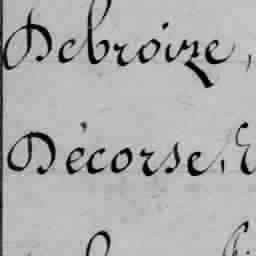 Debroize,
Décorse,